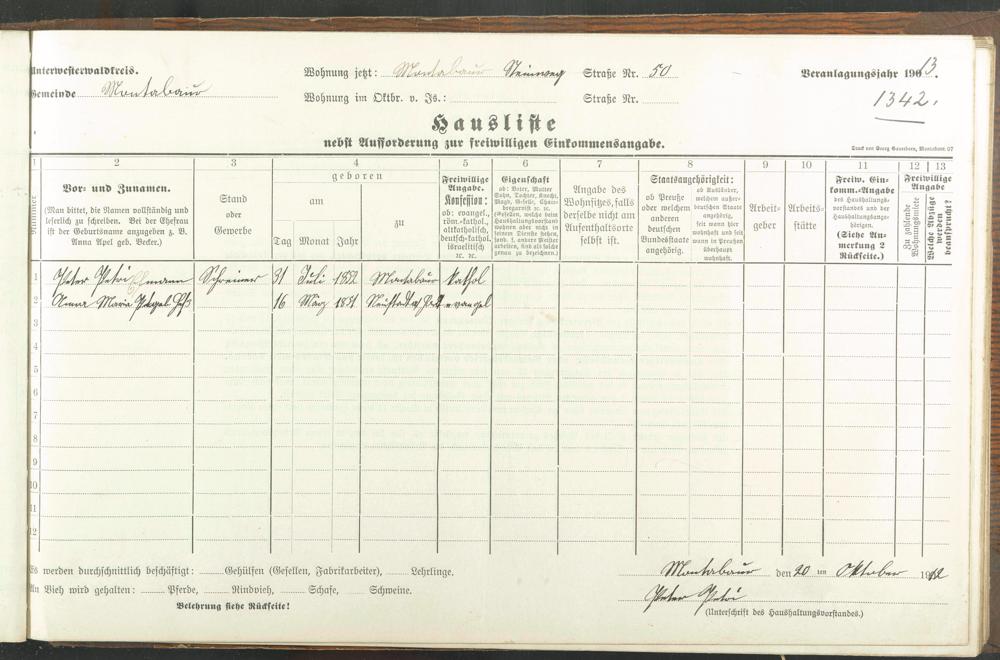 Unterwesterwaldkreis.
Gemeinde Montabaur
Wohnung jetzt: Montabaur Steinweg Straße Nr. 50
Wohnung im Oktbr. v. Js.: Straße Nr.
Veranlagungsjahr 1913.
1342.
Hausliste
nebst Aufforderung zur freiwilligen Einkommensangabe.
Druck von Georg Sauerborn, Montabaur. 07
1 2 3 4 5 6 7 8 9 10 11 12 13
Nummer
Vor- und Zunamen.
(Man bittet, die Namen vollständig und
leserlich zu schreiben. Bei der Ehefrau
ist der Geburtsname anzugeben z. B.
Anna Apel geb. Becker.)
Stand
oder
Gewerbe
geboren
am
Tag Monat Jahr
zu
Freiwillige
Angabe.
Konfession:
ob: evangel.,
röm.-kathol.,
altkatholisch,
deutsch-kathol.
israelitisch
ꝛc. ꝛc.
Eigenschaft
ob: Vater, Mutter
Sohn, Tochter, Knecht,
Magd, Geselle, Chambregarnist ꝛc. ꝛc.
(Gesellen, welche beim
Haushaltungsvorstand
wohnen aber nicht in
seinen Dienste stehen,
sond. f. andere Meister
arbeiten, sind als solche
genau zu bezeichnen.)
Angabe des
Wohnsitzes, falls
derselbe nicht am
Aufenthaltsorte
selbst ist.
Staatsangehörigkeit:
ob Preuße
oder welchem
anderen
deutschen
Bundesstaate
angehörig.
ob Ausländer,
welchem außerdeutschen Staate
angehörig,
seit wann hier
wohnhaft und seit
wann in Preußen
überhaupt
wohnhaft.
Arbeitgeber
Arbeitsstätte
Freiw. Einkomm.-Angabe
des Haushaltungsvorstandes und der
Haushaltungsangehörigen.
(Siehe Anmerkung 2
Rückseite.)
Freiwillige
Angabe
Zu zahlende
Wohnungsmiete
Welche Abzüge
werden
beansprucht?
1 Peter Petri Ehmann Schreiner 31 Juli 1852 Montabaur kathol
2 Anna Maria 16 März 1851 evangel
3
4
5
6
7
8
9
10
11
12
Es werden durchschnittlich beschäftigt: Gehülfen (Gesellen, Fabrikarbeiter), Lehrlinge.
An Vieh wird gehalten: Pferde, Rindvieh, Schafe, Schweine.
Belehrung siehe Rückseite!
Montabaur den 20 ten Oktober 1912
Peter Petri
(Unterschrift des Haushaltungsvorstandes.)